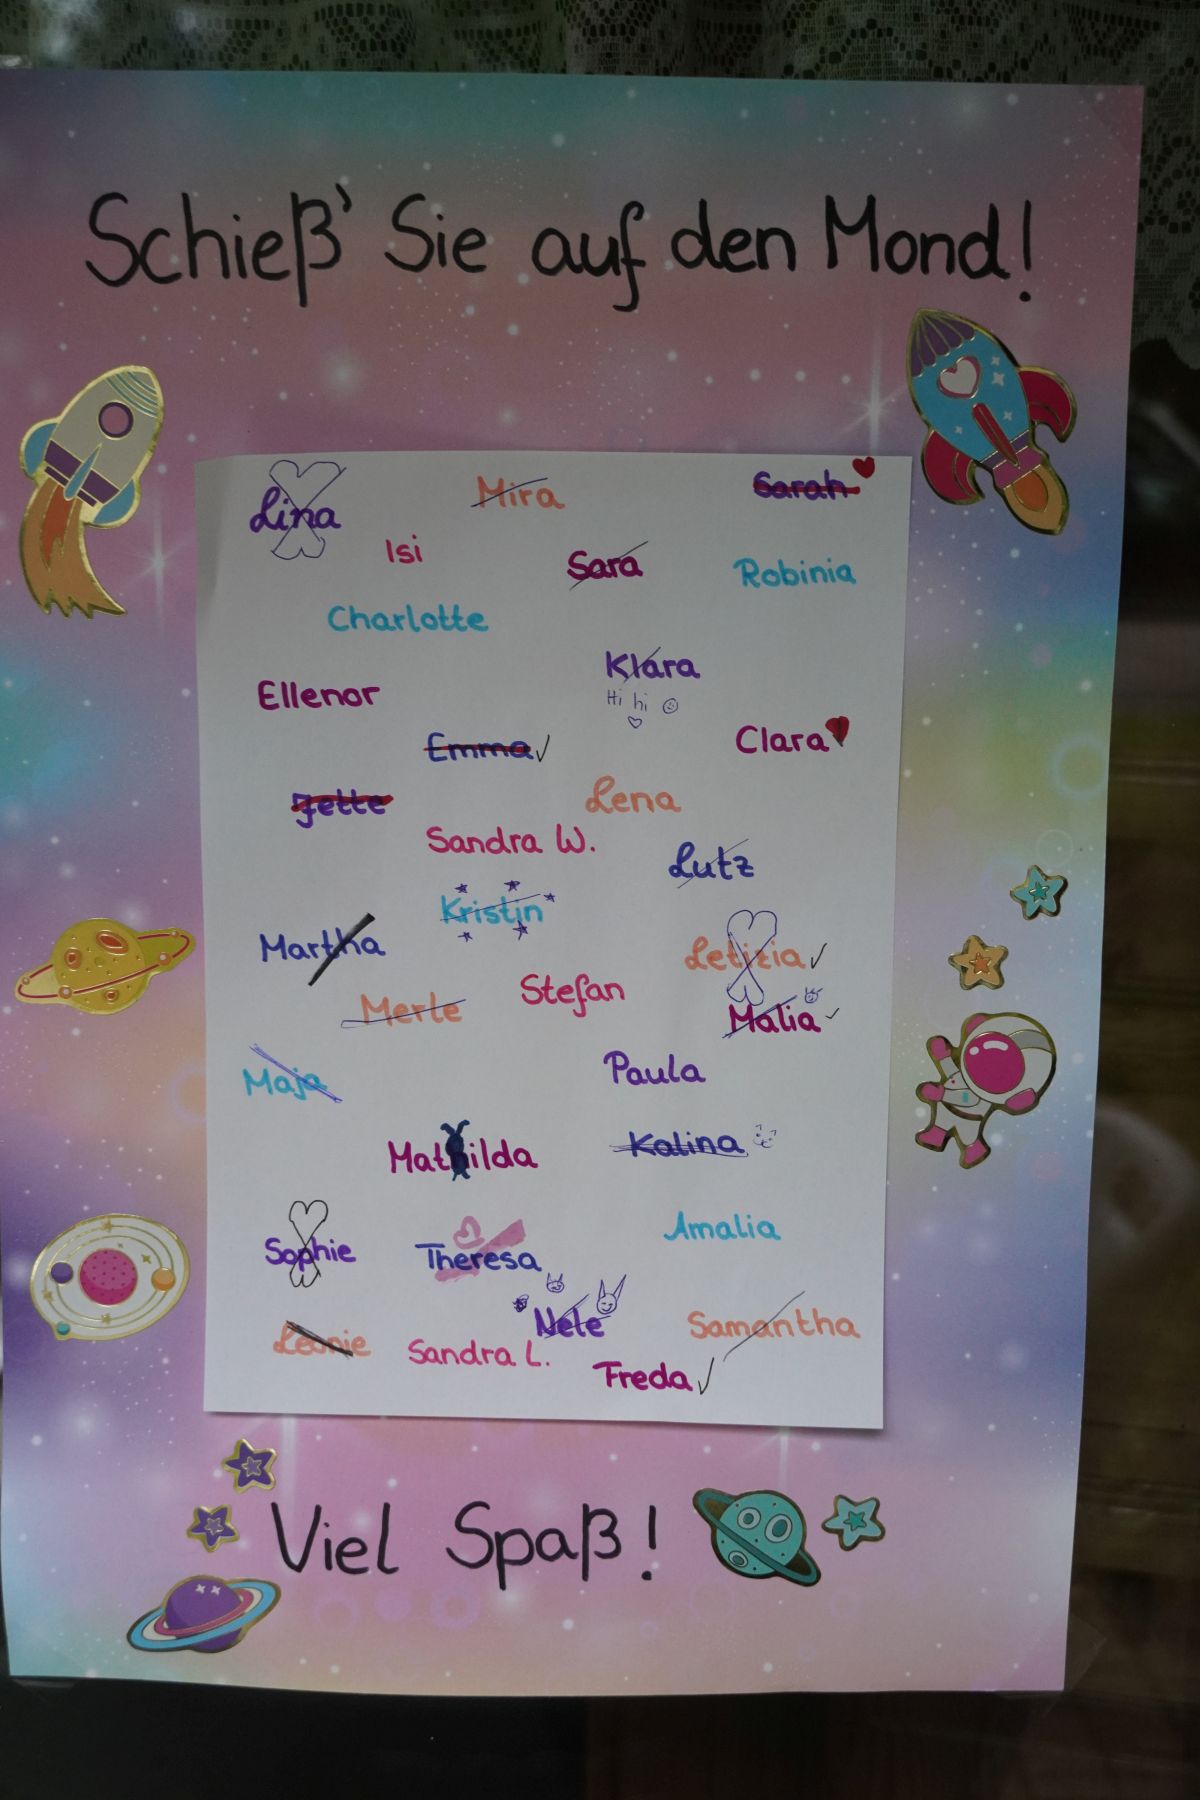 Schieß' Sie auf den Mond!
Lina Mira Sarah
Isi Sara Robinia
Charlotte
Klara
Ellenor Hi hi
Emma Clara
Jette Lena
Sandra W. Lutz
Kristin
Martha Letizia
Merle Stefan Malia
Maja Paula
Mathilda Kalina
Sophie Theresa Amalia
Leonie Sandra L. Nele Samantha
Freda
Viel Spaß!